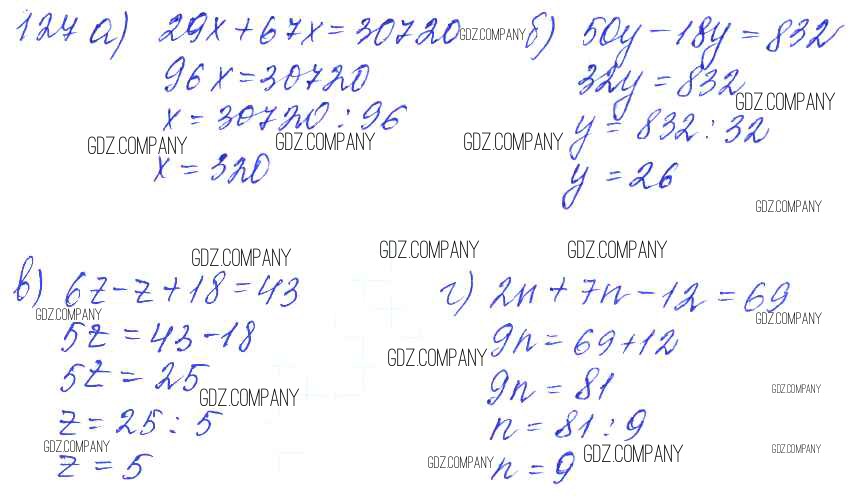 127 а) 29x + 67x = 30720 GDZ.COMPANY б) 50y - 18y = 832
96x = 30720 32y = 832
GDZ.COMPANY
x = 30720 : 96 y = 832 : 32
GDZ.COMPANY GDZ.COMPANY GDZ.COMPANY
x = 320 y = 26
GDZ.COMPANY
GDZ.COMPANY GDZ.COMPANY GDZ.COMPANY
в) 6z - z + 18 = 43 г) 2n + 7n - 12 = 69
GDZ.COMPANY GDZ.COMPANY
5z = 43 - 18 9n = 69 + 12
GDZ.COMPANY
5z = 25 9n = 81
GDZ.COMPANY GDZ.COMPANY
z = 25 : 5 n = 81 : 9
GDZ.COMPANY GDZ.COMPANY GDZ.COMPANY
z = 5 GDZ.COMPANY n = 9